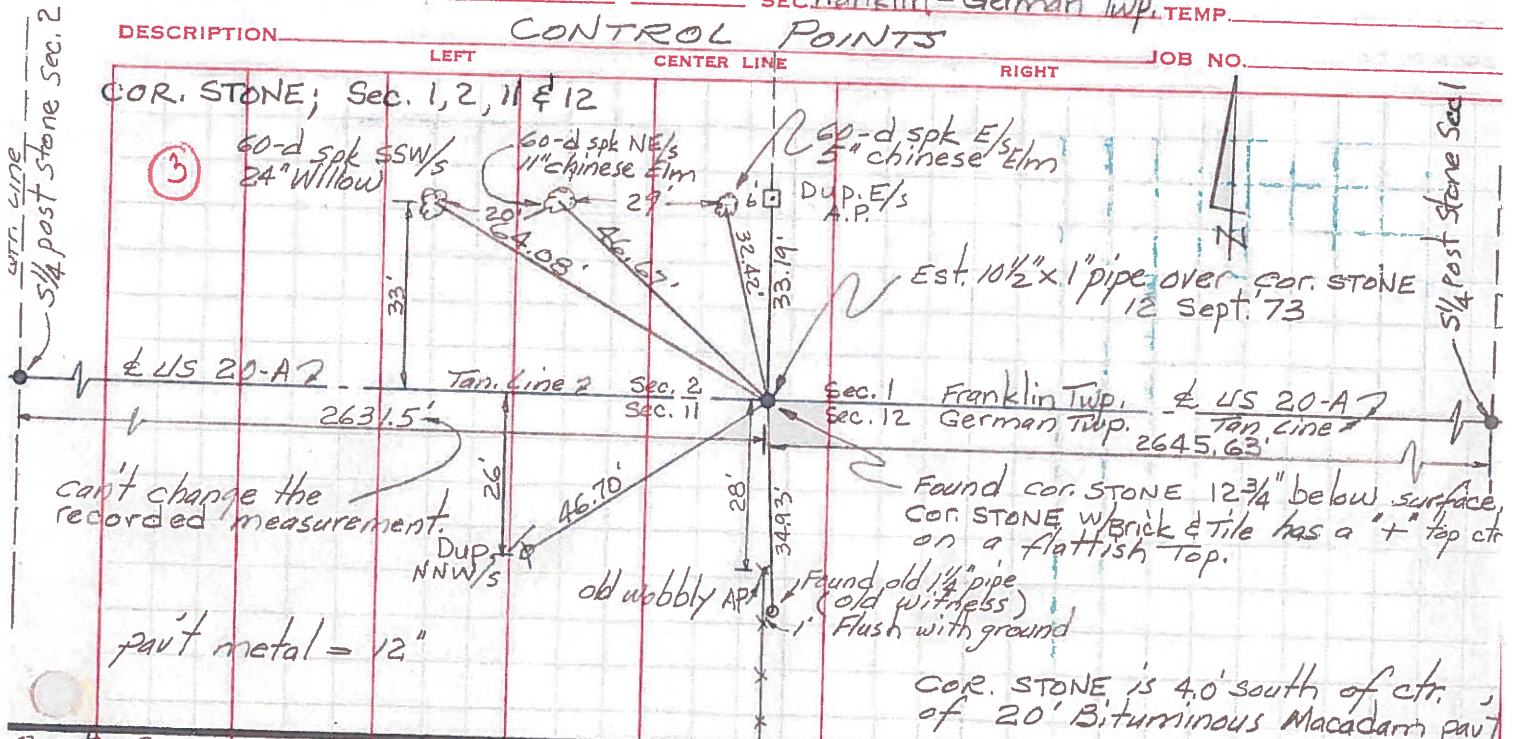 SEC. Franklin - German Twp. TEMP.
DESCRIPTION CONTROL POINTS
LEFT CENTER LINE RIGHT JOB NO.
COR. STONE; Sec. 1, 2, 11 & 12
3
60-d spk SSW/s
24" Willow
60-d spk NE/s
11" chinese Elm
60-d spk E/s
5" chinese Elm
20'
29'
6'
Dup. E/s
A.P.
64.08'
46.67'
32.42'
33.19'
33'
N
Est. 10½" x 1" pipe over cor. STONE
12 Sept. '73
S¼ post stone Sec. 2
S¼ post stone Sec 1
℄ US 20-A
Tan. Line
Sec. 2
Sec. 11
Sec. 1 Franklin Twp.
Sec. 12 German Twp.
℄ US 20-A
Tan Line
2631.5'
2645.63'
can't change the
recorded measurement.
26'
46.70'
28'
34.93'
Dup.
NNW/s
Found cor. STONE 12¾" below surface,
cor. STONE w/Brick & Tile has a "+" top ctr
on a flattish Top.
old wobbly AP
Found old 1¼" pipe
(old witness)
1' Flush with ground
pav't metal = 12"
COR. STONE is 4.0' south of ctr.
of 20' Bituminous Macadam pav't